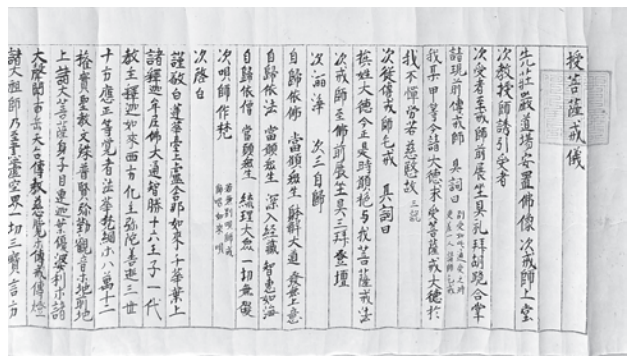 授菩薩戒儀
先莊嚴道場安置佛像次戒師上堂
次教授師誘引受者
次受者至戒師前展坐具礼拜胡跪合掌
請現前傳戒師 具詞曰
我某甲等今請大德求受菩薩戒大德於
我不憚勞苦慈愍故 三說
次從傳戒師乞戒 具詞曰
族姓大德今正是時願垂与我菩薩戒法
次戒師至佛前展坐具三拜登壇
次洒淨 次三自歸
自歸依佛 當願衆生 體解大道 發無上意
自歸依法 當願衆生 深入經藏 智惠如海
自歸依僧 當願衆生 統理大衆 一切無礙
次唄師作梵 若無別唄師戒師唱如來唄
次啓白
謹敬白蓮華臺上盧舍那如來千華葉上
諸釋迦牟尼佛大通智勝十六王子一代
教主釋迦如來西方化主弥陀善逝三世
十方應正等覺者法華梵網等八万十二
權實聖教文殊普賢弥勒觀音等地前地
上諸大菩薩身子目連迦葉優婆利等諸
大聲聞南岳天台傳教慈覺等傳戒傳燈
諸大祖師乃至盡虛空界一切三寶言方